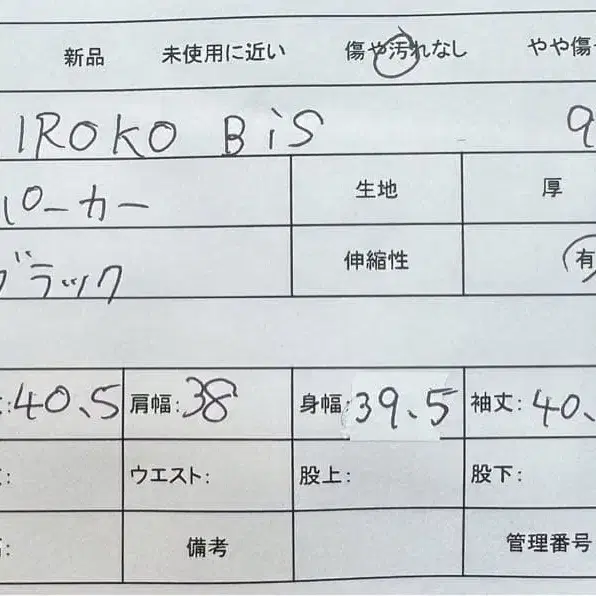 新品 未使用に近い 傷や汚れなし やや傷
IROKO BiS 9
パーカー 生地 厚
ブラック 伸縮性 有
:40.5 肩幅:38 身幅:39.5 袖丈:40.
: ウエスト: 股上: 股下:
: 備考 管理番号